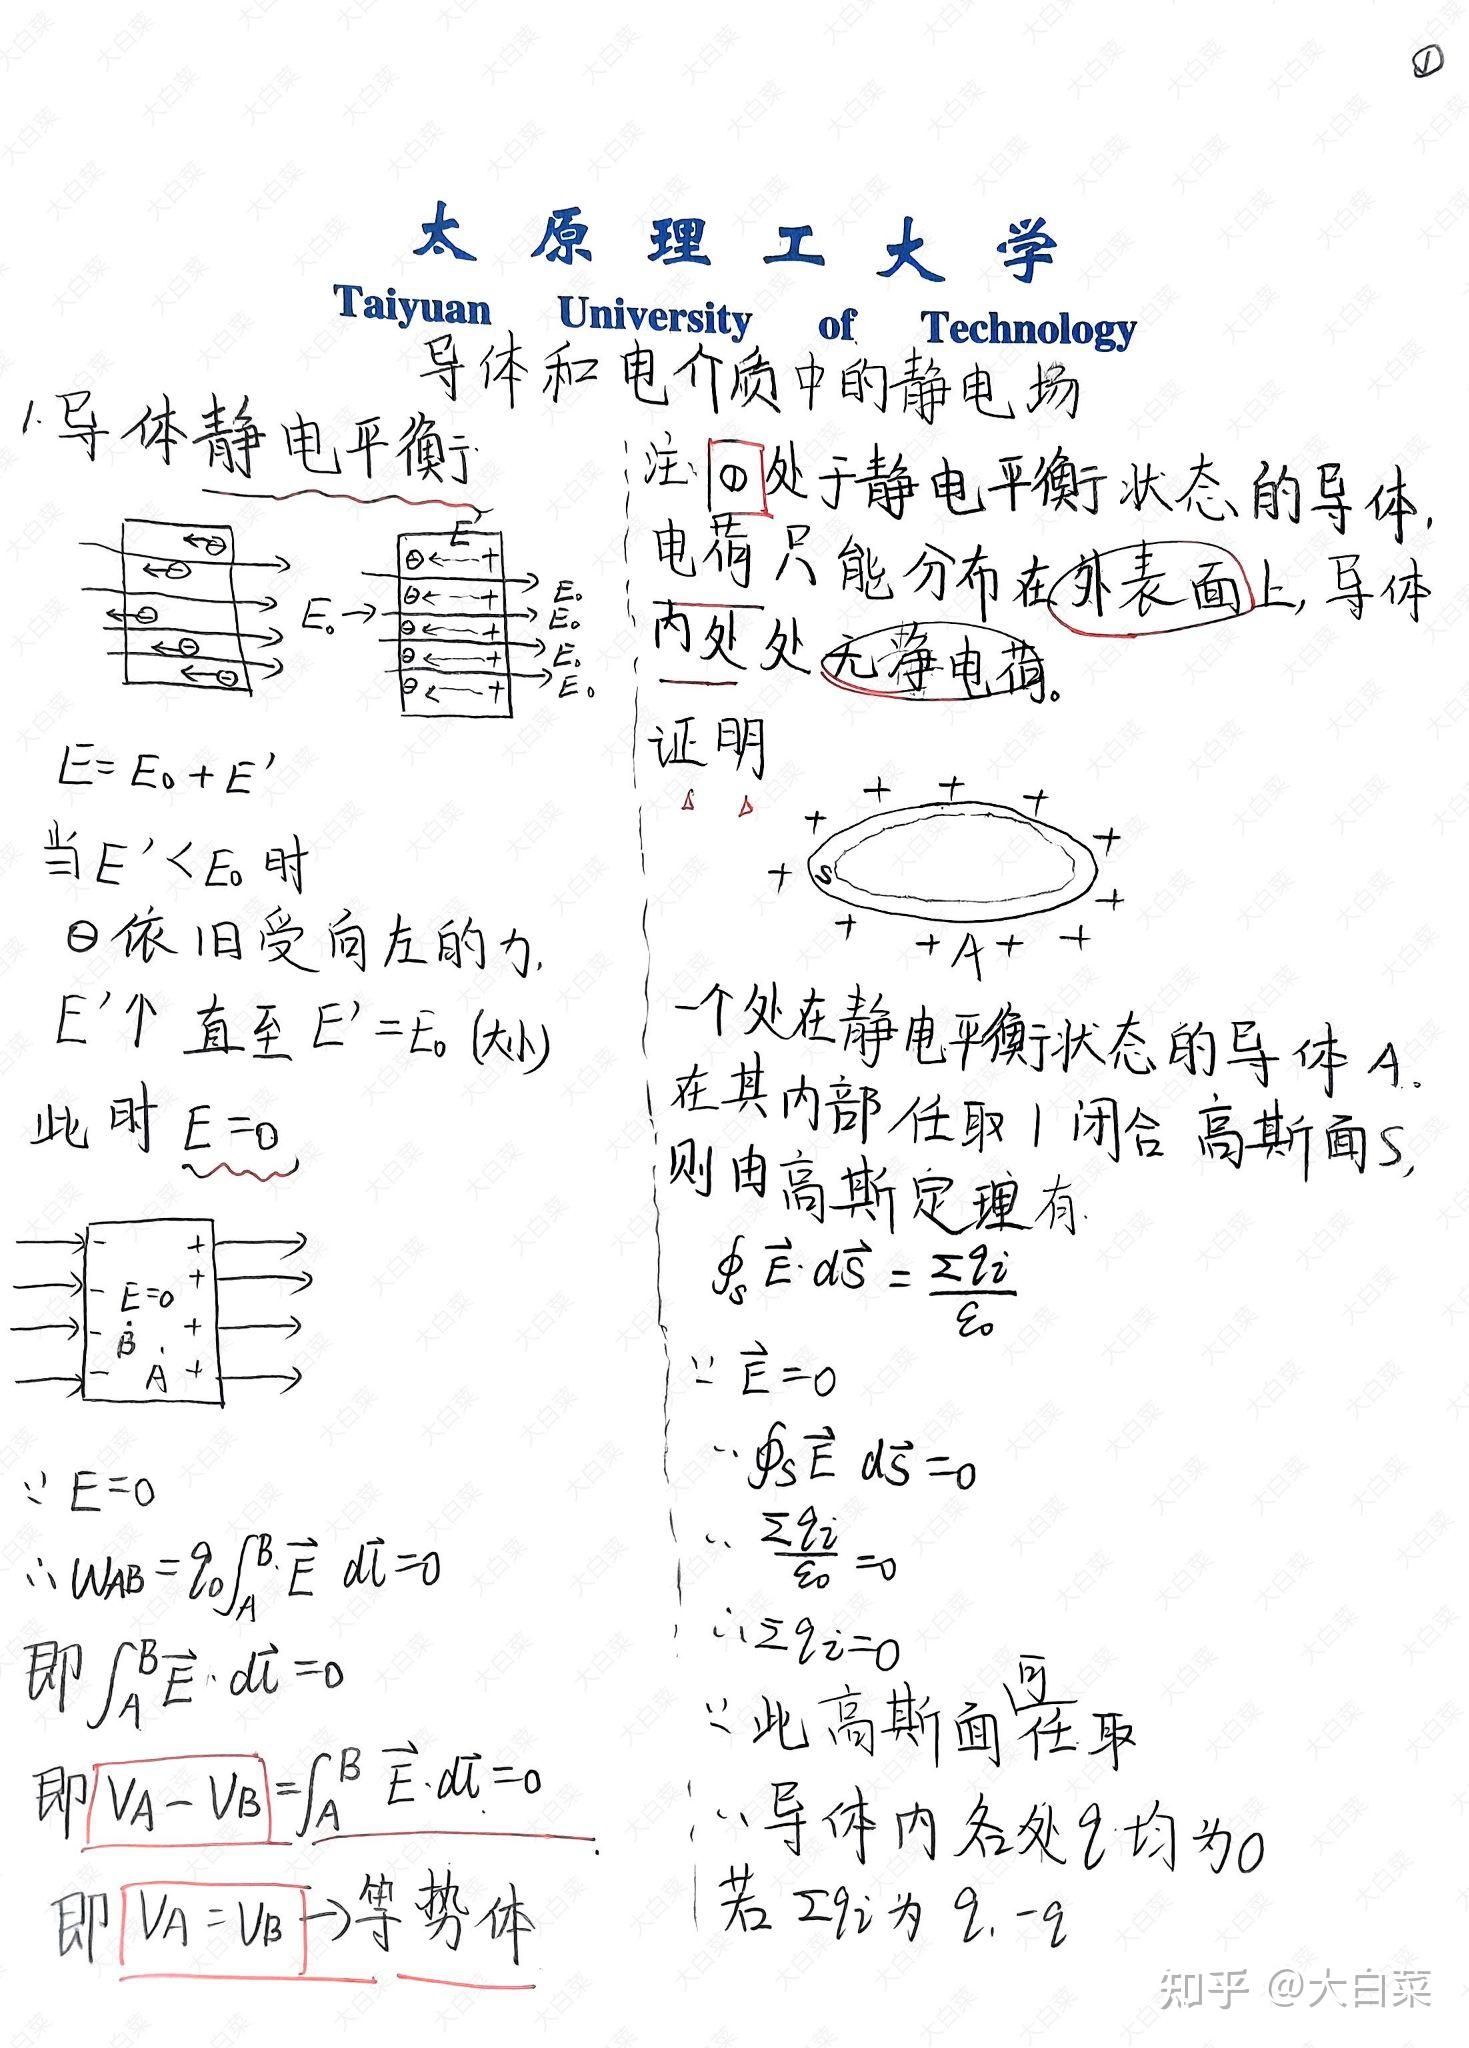 ①
太原理工大学
Taiyuan University of Technology
导体和电介质中的静电场
1. 导体静电平衡
E'
⊖ ←--- +
⊖ ←--- +
⊖ ←--- +
⊖ ←--- +
⊖ ←--- +
E₀ →
E₀
E₀
E₀
E₀
E = E₀ + E'
当 E' < E₀ 时
⊖ 依旧受向左的力.
E'↑ 直至 E' = E₀ (大小)
此时 E = 0
- +
- +
E=0
- +
B
- A +
∵ E = 0
∴ WAB = q₀∫_A^B E⃗ dl⃗ = 0
即 ∫_A^B E⃗ · dl⃗ = 0
即 VA - VB = ∫_A^B E⃗ · dl⃗ = 0
即 VA = VB → 等势体
注: ① 处于静电平衡状态的导体,
电荷只能分布在外表面上, 导体
内处处无静电荷。
证明
+ + + + + + + + + + + +
S
A
一个处在静电平衡状态的导体 A。
在其内部任取1闭合高斯面S,
则由高斯定理有.
∮s E⃗ · dS⃗ = Σqi/ε₀
∵ E⃗ = 0
∵ ∮s E⃗ dS⃗ = 0
∴ Σqi/ε₀ = 0
∴ Σqi = 0
∵ 此高斯面可任取
∴ 导体内各处q均为0
若 Σqi 为 q, -q
知乎 @大白菜